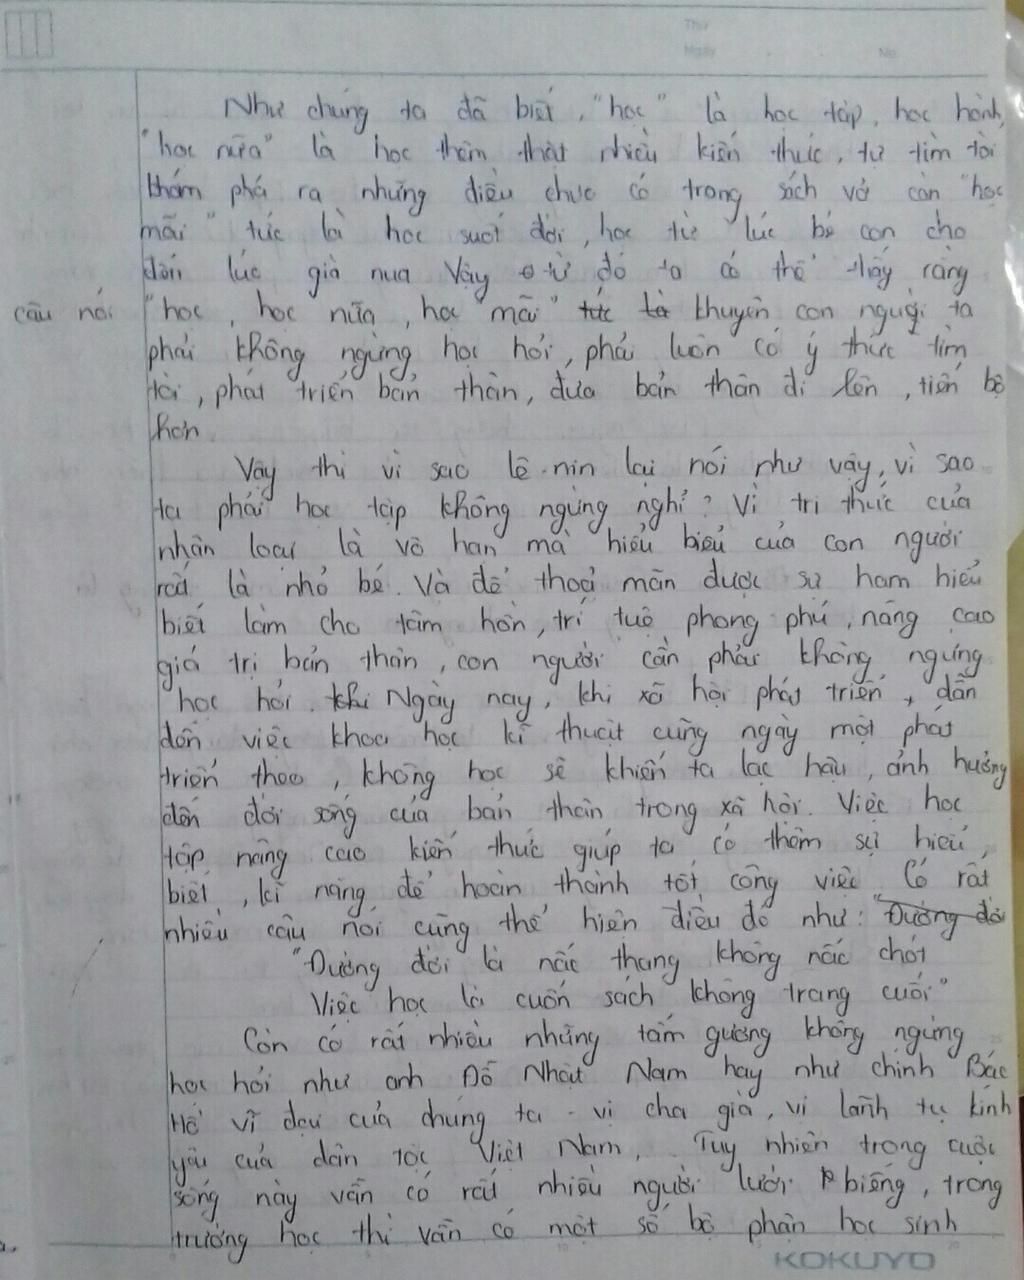 Thứ
Ngày No
Như chúng ta đã biết, "học" là học tập, học hành,
"học nữa" là học thêm thật nhiều kiến thức, tự tìm tòi
khám phá ra những điều chưa có trong sách vở còn "học
mãi" tức là học suốt đời, học từ lúc bé con cho
đến lúc già nua. Vậy từ đó ta có thể thấy rằng
câu nói "học, học nữa, học mãi" tức là khuyên con người ta
phải không ngừng học hỏi, phải luôn có ý thức tìm
tòi, phát triển bản thân, đưa bản thân đi lên, tiến bộ
hơn.
Vậy thì vì sao Lê-nin lại nói như vậy, vì sao
ta phải học tập không ngừng nghỉ? Vì tri thức của
nhân loại là vô hạn mà hiểu biết của con người
rất là nhỏ bé. Và để thoả mãn được sự ham hiểu
biết làm cho tâm hồn, trí tuệ phong phú, nâng cao
giá trị bản thân, con người cần phải không ngừng
học hỏi. Khi Ngày nay, khi xã hội phát triển, dẫn
đến việc khoa học kĩ thuật cũng ngày một phát
triển theo, không học sẽ khiến ta lạc hậu, ảnh hưởng
đến đời sống của bản thân trong xã hội. Việc học
tập nâng cao kiến thức giúp ta có thêm sự hiểu
biết, kĩ năng để hoàn thành tốt công việc. Có rất
nhiều câu nói cũng thể hiện điều đó như: "Đường đời
"Đường đời là nấc thang không nấc chót
Việc học là cuốn sách không trang cuối"
Còn có rất nhiều những tấm gương không ngừng
học hỏi như anh Đỗ Nhật Nam hay như chính Bác
Hồ vĩ đại của chúng ta - vị cha già, vị lãnh tụ kính
yêu của dân tộc Việt Nam, Tuy nhiên trong cuộc
sống này vẫn có rất nhiều người lười biếng, trong
trường học thì vẫn có một số bộ phận học sinh
KOKUYO